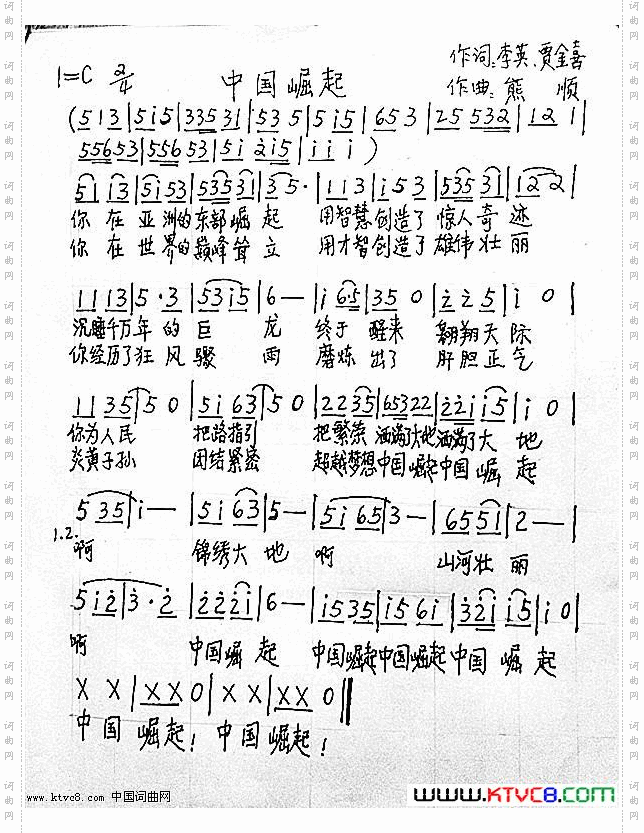 作词:李英、贾金喜
1=C 2/4 中国崛起
作曲:熊 顺
(513|5i5|33531|535|5i5|653|25532|121|
55653|55653|5i2i5|iii)
51i3|5i53|53531|35·|113|i53|53531|122|
你在亚洲的东部崛起 用智慧创造了惊人奇迹
你在世界的巅峰耸立 用才智创造了雄伟壮丽
1113|5·3|53i5|6—|i65|350|ż2̇5|i0|
沉睡千万年的巨龙 终于醒来 翱翔天际
你经历了狂风骤雨 磨炼出了 肝胆正气
1135|50|5i63|50|2235|65322|2̇2̇ii5|i0|
你为人民 把路指引 把繁荣洒满了大地洒满了大地
炎黄子孙 团结紧密 超越梦想中国崛起中国崛起
535|i—|5i63|5—|5i65|3—|6551|2—|
1.2.
啊 锦绣大地 啊 山河壮丽
5i2̇|3̇·2̇|2̇2̇2̇i|6—|i535|i56i|3̇2̇ii5|i0|
啊 中国崛起 中国崛起中国崛起中国崛起
X X|XX0|X X|XX0‖
中国崛起!中国崛起!
www.ktvc8.com 中国词曲网
www.KTVC8.COM
词曲网